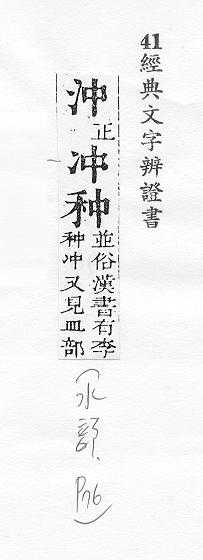 41經典文字辨證書
沖正冲种並俗漢書有李
种冲又見皿部
(水 P76)